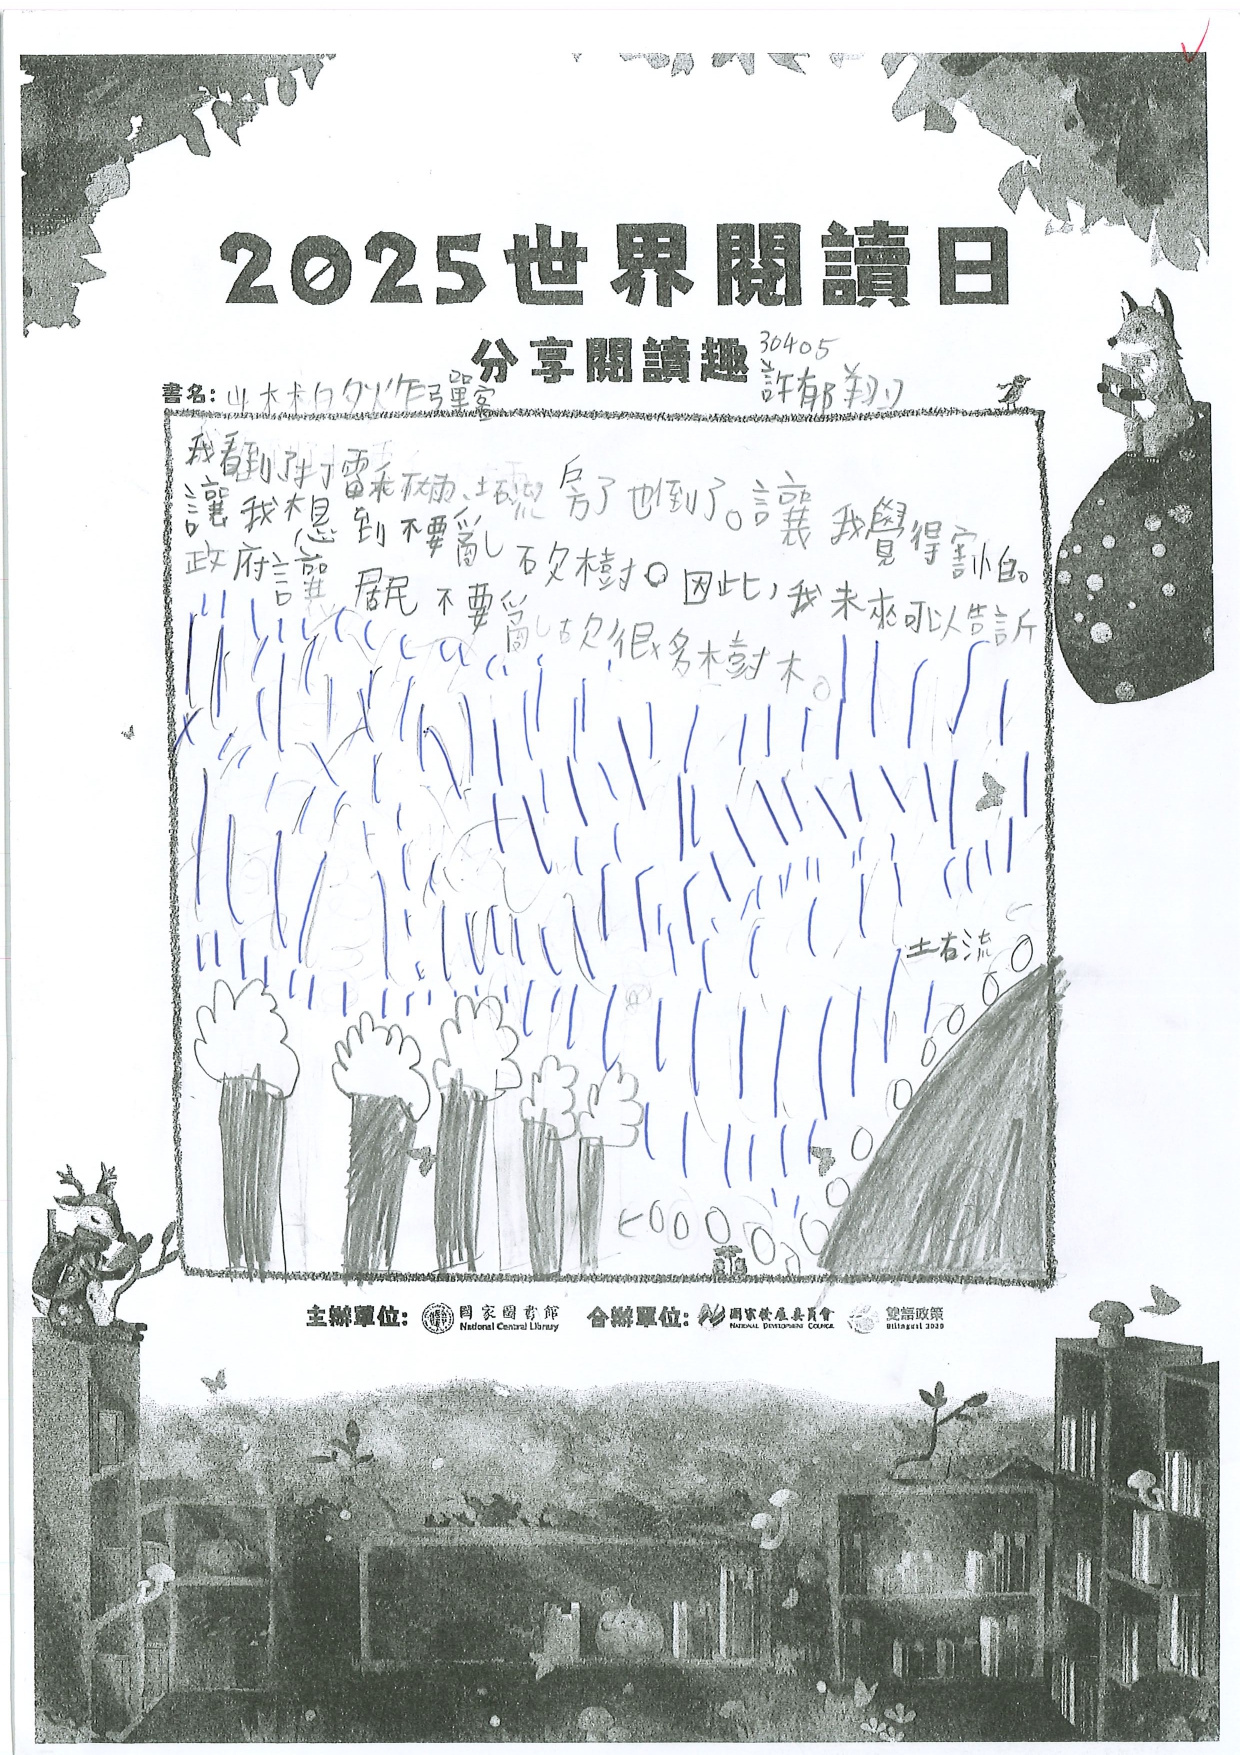 2025世界閱讀日
分享閱讀趣
30405
許郁翔
書名:山林的炸彈客
我看到了打雷和下雨、土石流 房子也倒了。讓我覺得害怕。
讓我想到不要亂砍樹。因此,我未來可以告訴
政府讓居民不要亂砍很多木樹木。
土石流
主辦單位: 國家圖書館 合辦單位: 國家發展委員會 雙語政策
National Central Library NATIONAL DEVELOPMENT COUNCIL Bilingual 2030